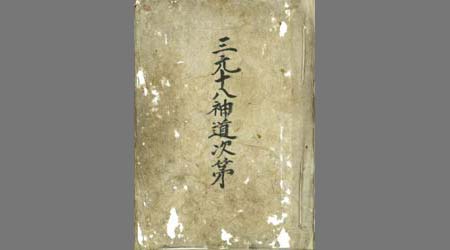 三元十八神道次第